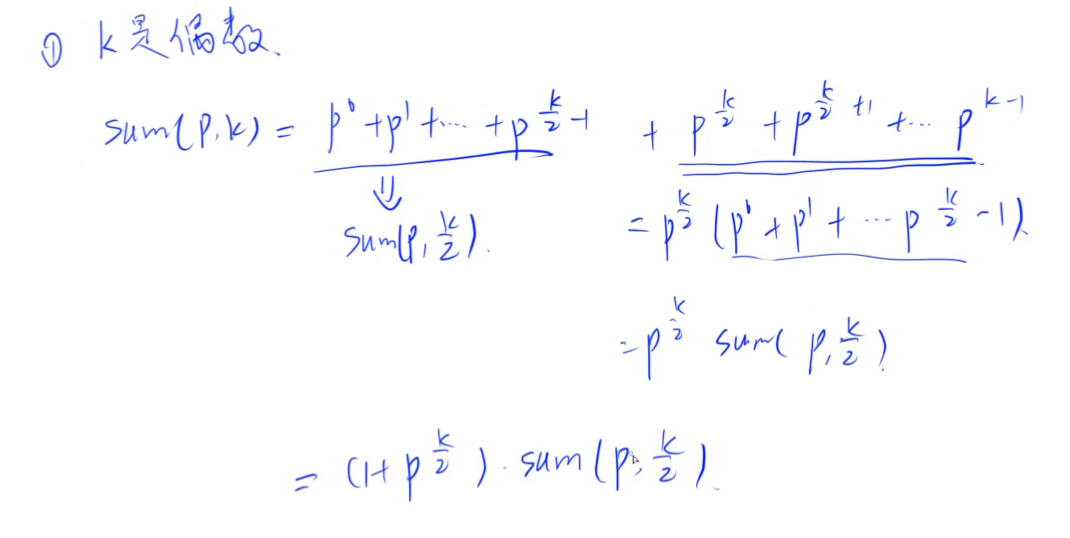 ① k是偶数、
sum(p,k) = p⁰+p¹+⋯+p^{k/2 -1} + p^{k/2} + p^{k/2 +1} +⋯ p^{k-1}
⇓
sum(p, k/2).
= p^{k/2} (p⁰+p¹+⋯p^{k/2 -1})
= p^{k/2} sum(p, k/2)
= (1+p^{k/2}) · sum(p, k/2).